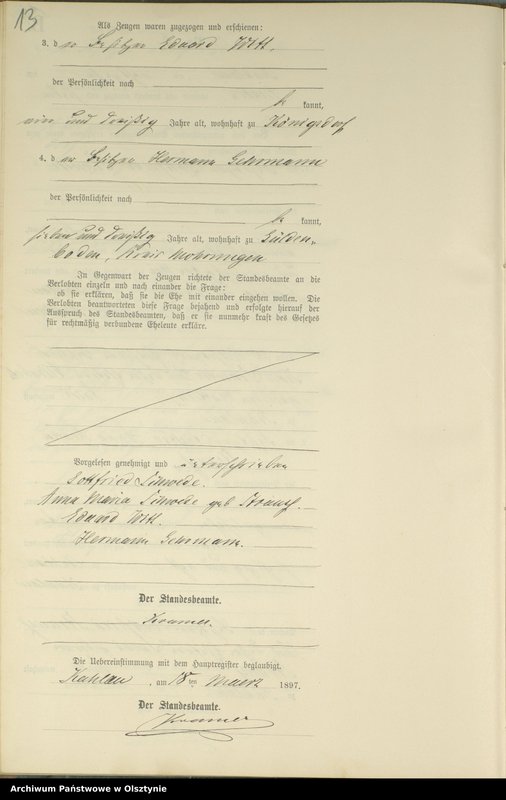 13
Als Zeugen waren zugezogen und erschienen:
3. der Besitzer Eduard Witt.
der Persönlichkeit nach
be kannt,
ein und dreißig Jahre alt, wohnhaft zu Königsdorf
4. der Besitzer Hermann Gehrmann
der Persönlichkeit nach
be kannt,
sieben und dreißig Jahre alt, wohnhaft zu Gülden-
boden, Kreis Mohrungen
In Gegenwart der Zeugen richtete der Standesbeamte an die
Verlobten einzeln und nach einander die Frage:
ob sie erklären, daß sie die Ehe mit einander eingehen wollen. Die
Verlobten beantworteten diese Frage bejahend und erfolgte hierauf der
Ausspruch des Standesbeamten, daß er sie nunmehr kraft des Gesetzes
für rechtmäßig verbundene Eheleute erkläre.
Vorgelesen genehmigt und unterschrieben
Gottfried
Anna Maria geb
Eduard Witt.
Hermann Gehrmann.
Der Standesbeamte.
Kramer.
Die Uebereinstimmung mit dem Hauptregister beglaubigt.
Kahlau, am 18ten Maerz 1897.
Der Standesbeamte.
Kramer
Archiwum Państwowe w Olsztynie